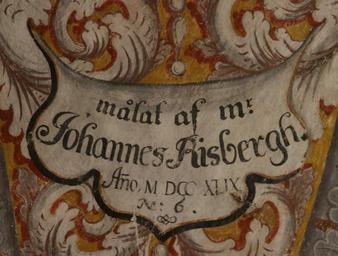 målat af mr:
Johannes Risbergh.
Año. M DCC XLIX
No: 6.